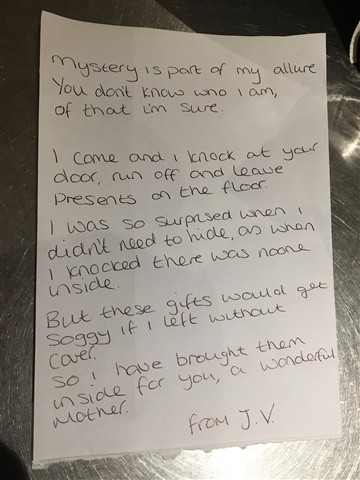 Mystery is part of my allure
You don't know who I am,
of that i'm sure.
I come and I knock at your
door, run off and leave
Presents on the floor.
I was so surprised when I
didn't need to hide, as when
I knocked there was noone
inside.
But these gifts would get
soggy if I left without
cover.
So I have brought them
inside for you, a wonderful
Mother.
From J.V.